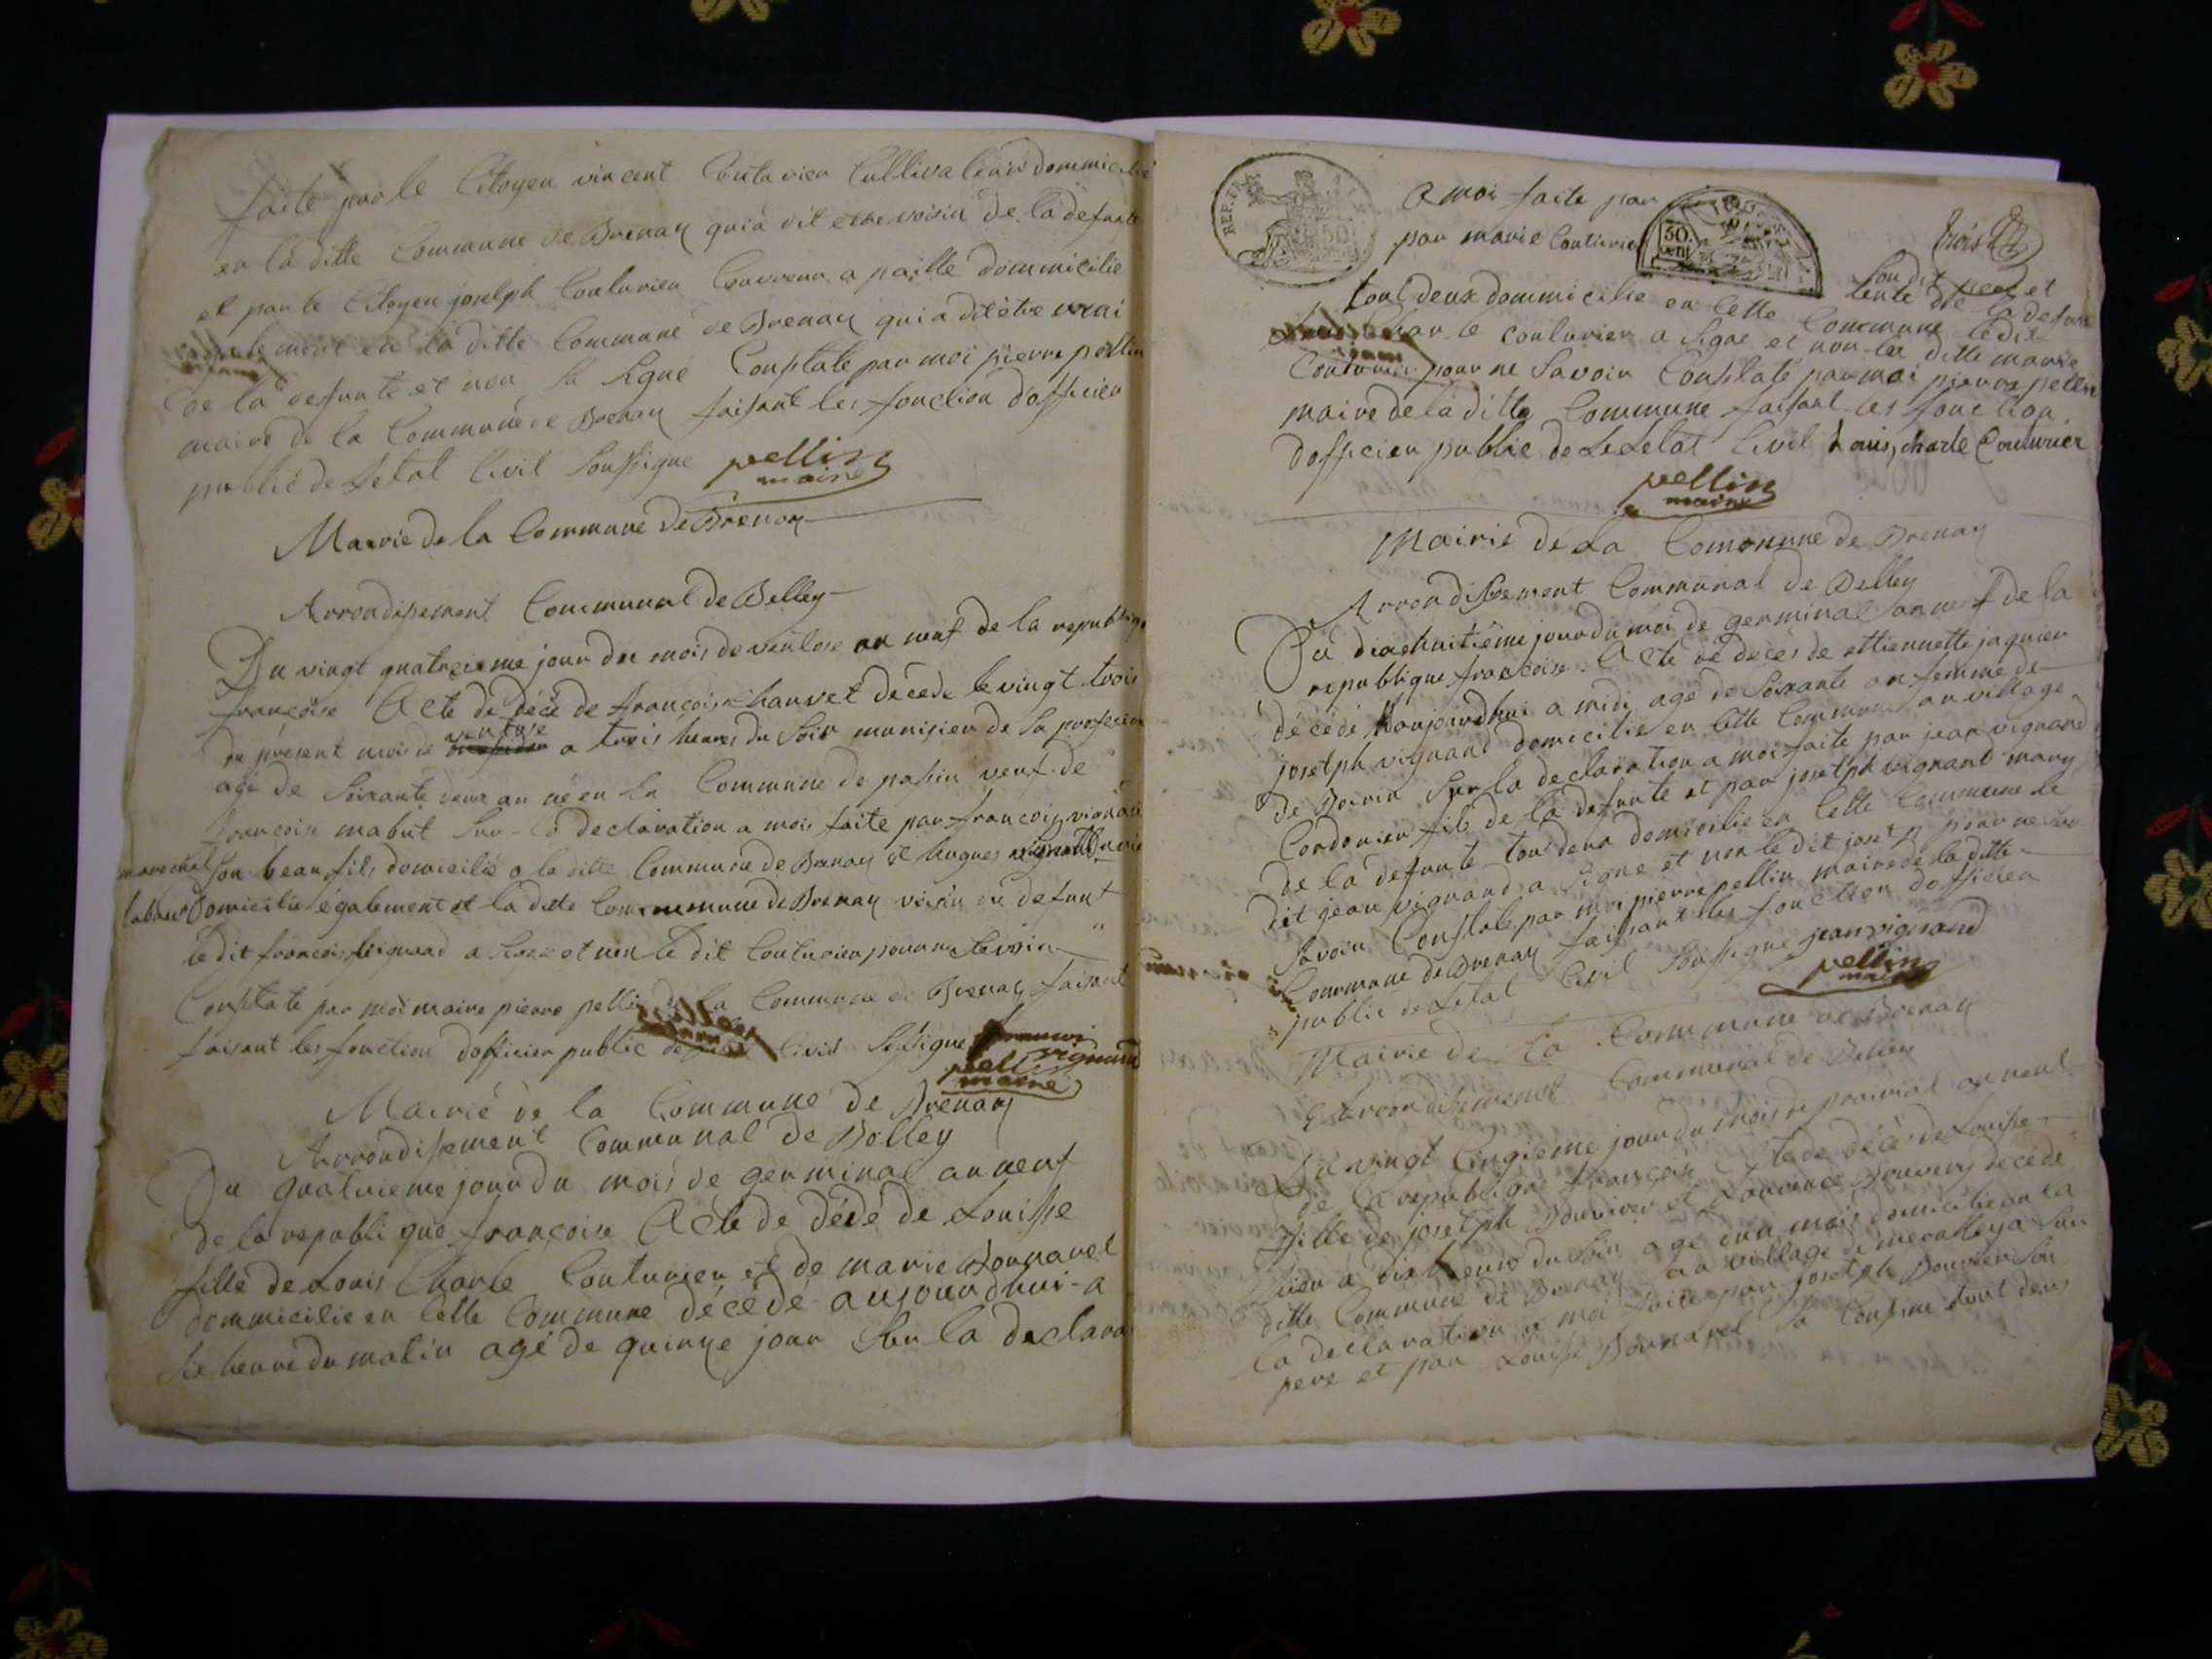 faite par le Citoyen vincent Couturier Cultivateur dommicilié
en la ditte Commune de Brenay qui a dit etre voisin de la defunte
et par le Citoyen joselph Couturier Couvreur a paille dommicilie
également en la ditte Commune de Brenay qui a dit être
de la defunte et non Signe Constate par moi pierre pellin
maire de la Commune de Brenay faisant les fonction dofficier
public de Letat Civil Soussigne pellin
maire
Mairie de la Commune de Brenay
Arrondisement Communal de Belley
Du vingt quatrieme jour du mois de ventose an neuf de la republique
françoise Acte de décé de françois chauvet décede le vingt trois
ventose
du présent mois de a trois heures du Soir munisier de Sa profession
agé de Soixante deux an né en La Commune de veuf de
françoise mabut Sur la declaration a mois faite par françois vignand
marechal Son beau fils domicilié a la ditte Commune de Brenay et hugues
labour Domicilié également et la ditte Commune de Brenay voisin du defunt
le dit françois vignand a Signe et non le dit Couturier pour ne Savoir
Constate par moi maire pierre pellin de la Commune de Brenay faisant
faisant les fonction dofficier public de Civil Susigne francoi
vignand
pellin
maire
Mairié de la Commune de Brenay
Arrondisement Communal de Belley
Du quatrieme jour du mois de germinal an neuf
de la republique françoise Acte de dédé de Louisse
fille de Louis Charle Couturier et de marie Bonnavel
dommicilie en Cette Commune décédé aujourdhui a
Six heure du matin agé de quinze jour Sur la declara
REP. FRA.
50
a moi faite par
par marie Couturier
30.
cent
trois
Son dit pere et
tente de la defunte
tout deux dommicilie en Cette Commune ledit
Louis Char le couturier a Signe et non la ditte marie
Couturier pour ne Savoir Constaté par moi pierre pellin
maire de la ditte Commune faisant les fonction
dofficier public de Letat Civil Louis, charle Couturier
pellin
maire
Mairie de La Commune de Brenay
Arrondissement Communal de Belley
Du dixe huitième jour du moi de germinal an neuf de la
republique françoise. Acte de decés de ettiennette jaquier
décédé aujourdhui a midi agé de Soixante an femme de
joselph vignand domicilie en Cette Commune au village
de Sur la declaration a moi faite par jean vignand
Cordonier fils de la defunte et par joselph vignand mary
de la defunte tou deux domicilie en Cette Commune le
dit jean vignand a Signe et non le dit joselp pour ne
Savoir Constate par moi pierre pellin maire de la ditte
Commune de Brenay faissant les fonction dofficier
public de Letat Civil Soussigne jean vignand
pellin
maire
Mairie de La Commune de Brenay
Arrondisement Communal de Belley
Du vingt Cinqieme jour du mois de prairial an neuf
de la republique françoise Acte de décès de Louisse
fille de joselph Bouvier et Laurence Bouvery décédé
hier a dix heure du Soir agé dun mois domicilie en la
ditte Commune de Brenay au village de meraleya Sur
la declaration a moi faite par joselph Bouvier Son
pere et par Louisse Bonnavel Sa Cousine tout deux